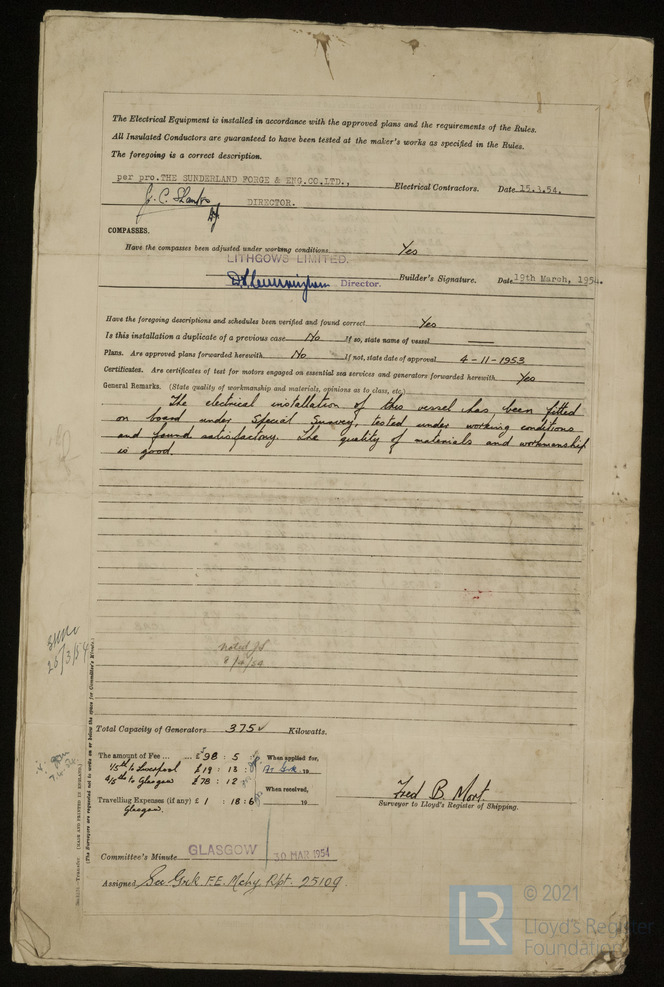 The Electrical Equipment is installed in accordance with the approved plans and the requirements of the Rules.
All Insulated Conductors are guaranteed to have been tested at the maker's works as specified in the Rules.
The foregoing is a correct description.
per pro.THE SUNDERLAND FORGE & ENG.CO.LTD., Electrical Contractors. Date 15.3.54.
DIRECTOR.
COMPASSES.
Have the compasses been adjusted under working conditions Yes
LITHGOWS LIMITED.
Director. Builder's Signature. Date 19th March, 1954.
Have the foregoing descriptions and schedules been verified and found correct Yes
Is this installation a duplicate of a previous case No If so, state name of vessel
Plans. Are approved plans forwarded herewith No If not, state date of approval 4-11-1953
Certificates. Are certificates of test for motors engaged on essential sea services and generators forwarded herewith Yes
General Remarks. (State quality of workmanship and materials, opinions as to class, etc.)
The electrical installation of this vessel has been fitted
on board under Special Survey, tested under working conditions
and found satisfactory. The quality of materials and workmanship
is good.
26/3/54
noted
8/4/54
Total Capacity of Generators 375 Kilowatts.
The amount of Fee ... ... £98 : 5 : When applied for,
1/5th to Liverpool £19 : 13 : 19
4/5th to Glasgow £78 : 12 When received,
Travelling Expenses (if any) £ 1 : 18 : 6 19
Glasgow.
Fred B. Mort
Surveyor to Lloyd's Register of Shipping.
Committee's Minute GLASGOW 30 MAR 1954
Assigned See Grk F.E. Mchy. Rpt. 25109
(MADE AND PRINTED IN ENGLAND.)
(The Surveyors are requested not to write on or below the space for Committee's Minute.)
LR
© 2021
Lloyd's Register
Foundation